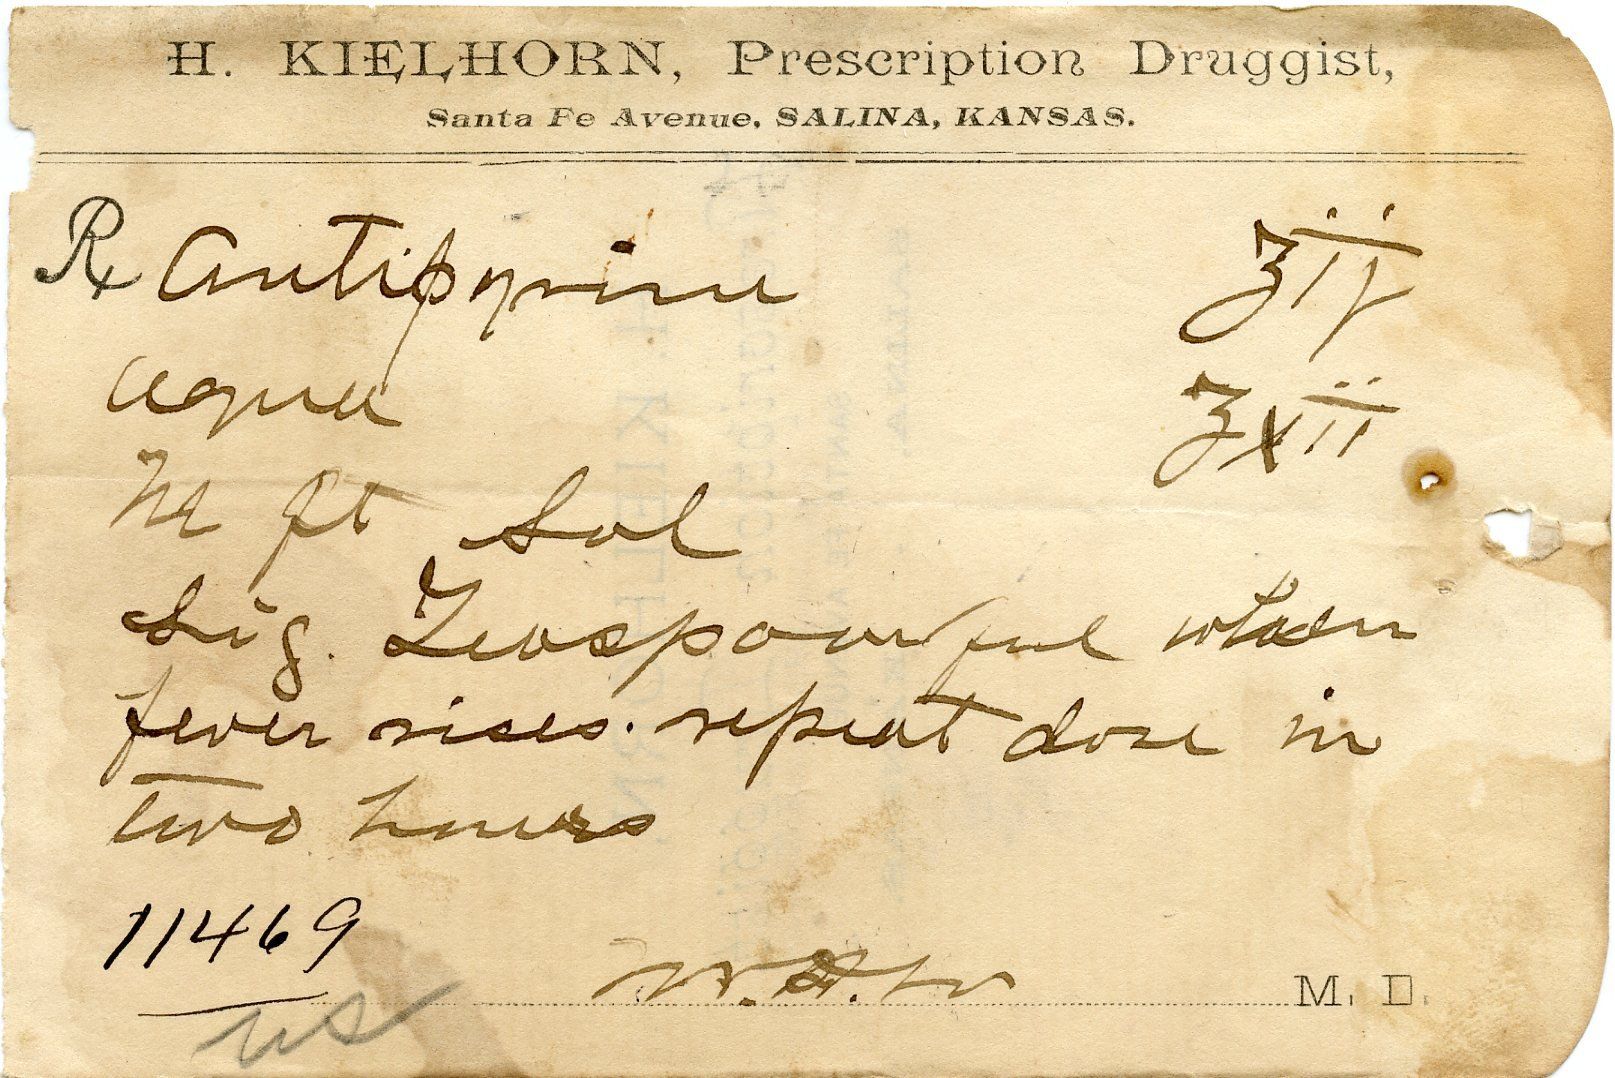 H. KIELHORN, Prescription Druggist,
Santa Fe Avenue, SALINA, KANSAS.
℞ Antipyrine ʒij
Aqua ʒxii
M ft Sol
Sig. Teaspoonful when
fever rises. repeat dose in
two hours
11469
M. D.